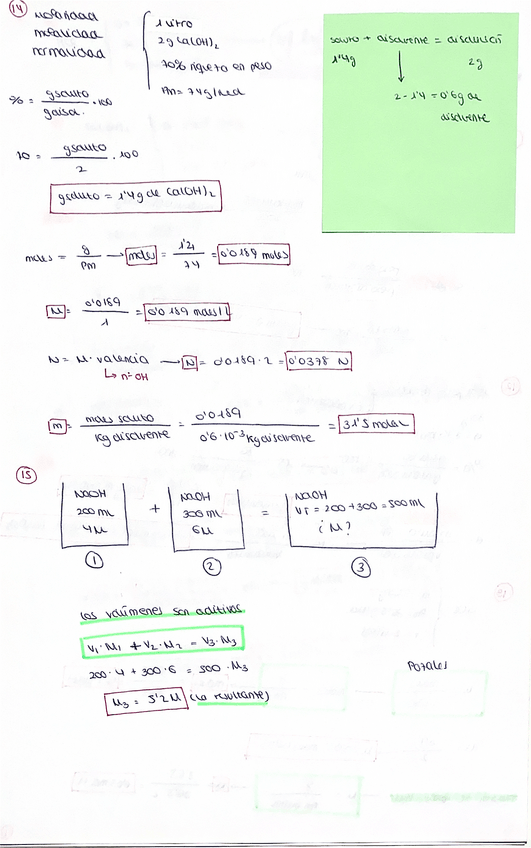 14
molaridad
molalidad
normalidad
1 litro
2g Ca(OH)₂
70% riqueza en peso
Pm = 74g/mol
% = gsoluto / gdisol. · 100
70 = gsoluto / 2 · 100
gsoluto = 1'4g de Ca(OH)₂
soluto + disolvente = disolución
1'4g 2g
2 - 1'4 = 0'6g de
disolvente
moles = g / Pm → moles = 1'4 / 74 = 0'0189 moles
M = 0'0189 / 1 = 0'0189 moles/l
N = M · valencia → N = 0'0189 · 2 = 0'0378 N
↳ nº OH
m = moles soluto / Kg disolvente = 0'0189 / 0'6·10⁻³ Kg disolvente = 31'5 molal
15
NaOH
200 ml
4M
+
NaOH
300 ml
6M
=
NaOH
VT = 200 + 300 = 500 ml
¿M?
1 2 3
Los volúmenes son aditivos
V₁·M₁ + V₂·M₂ = V₃·M₃
200·4 + 300·6 = 500·M₃
M₃ = 5'2M (la resultante)